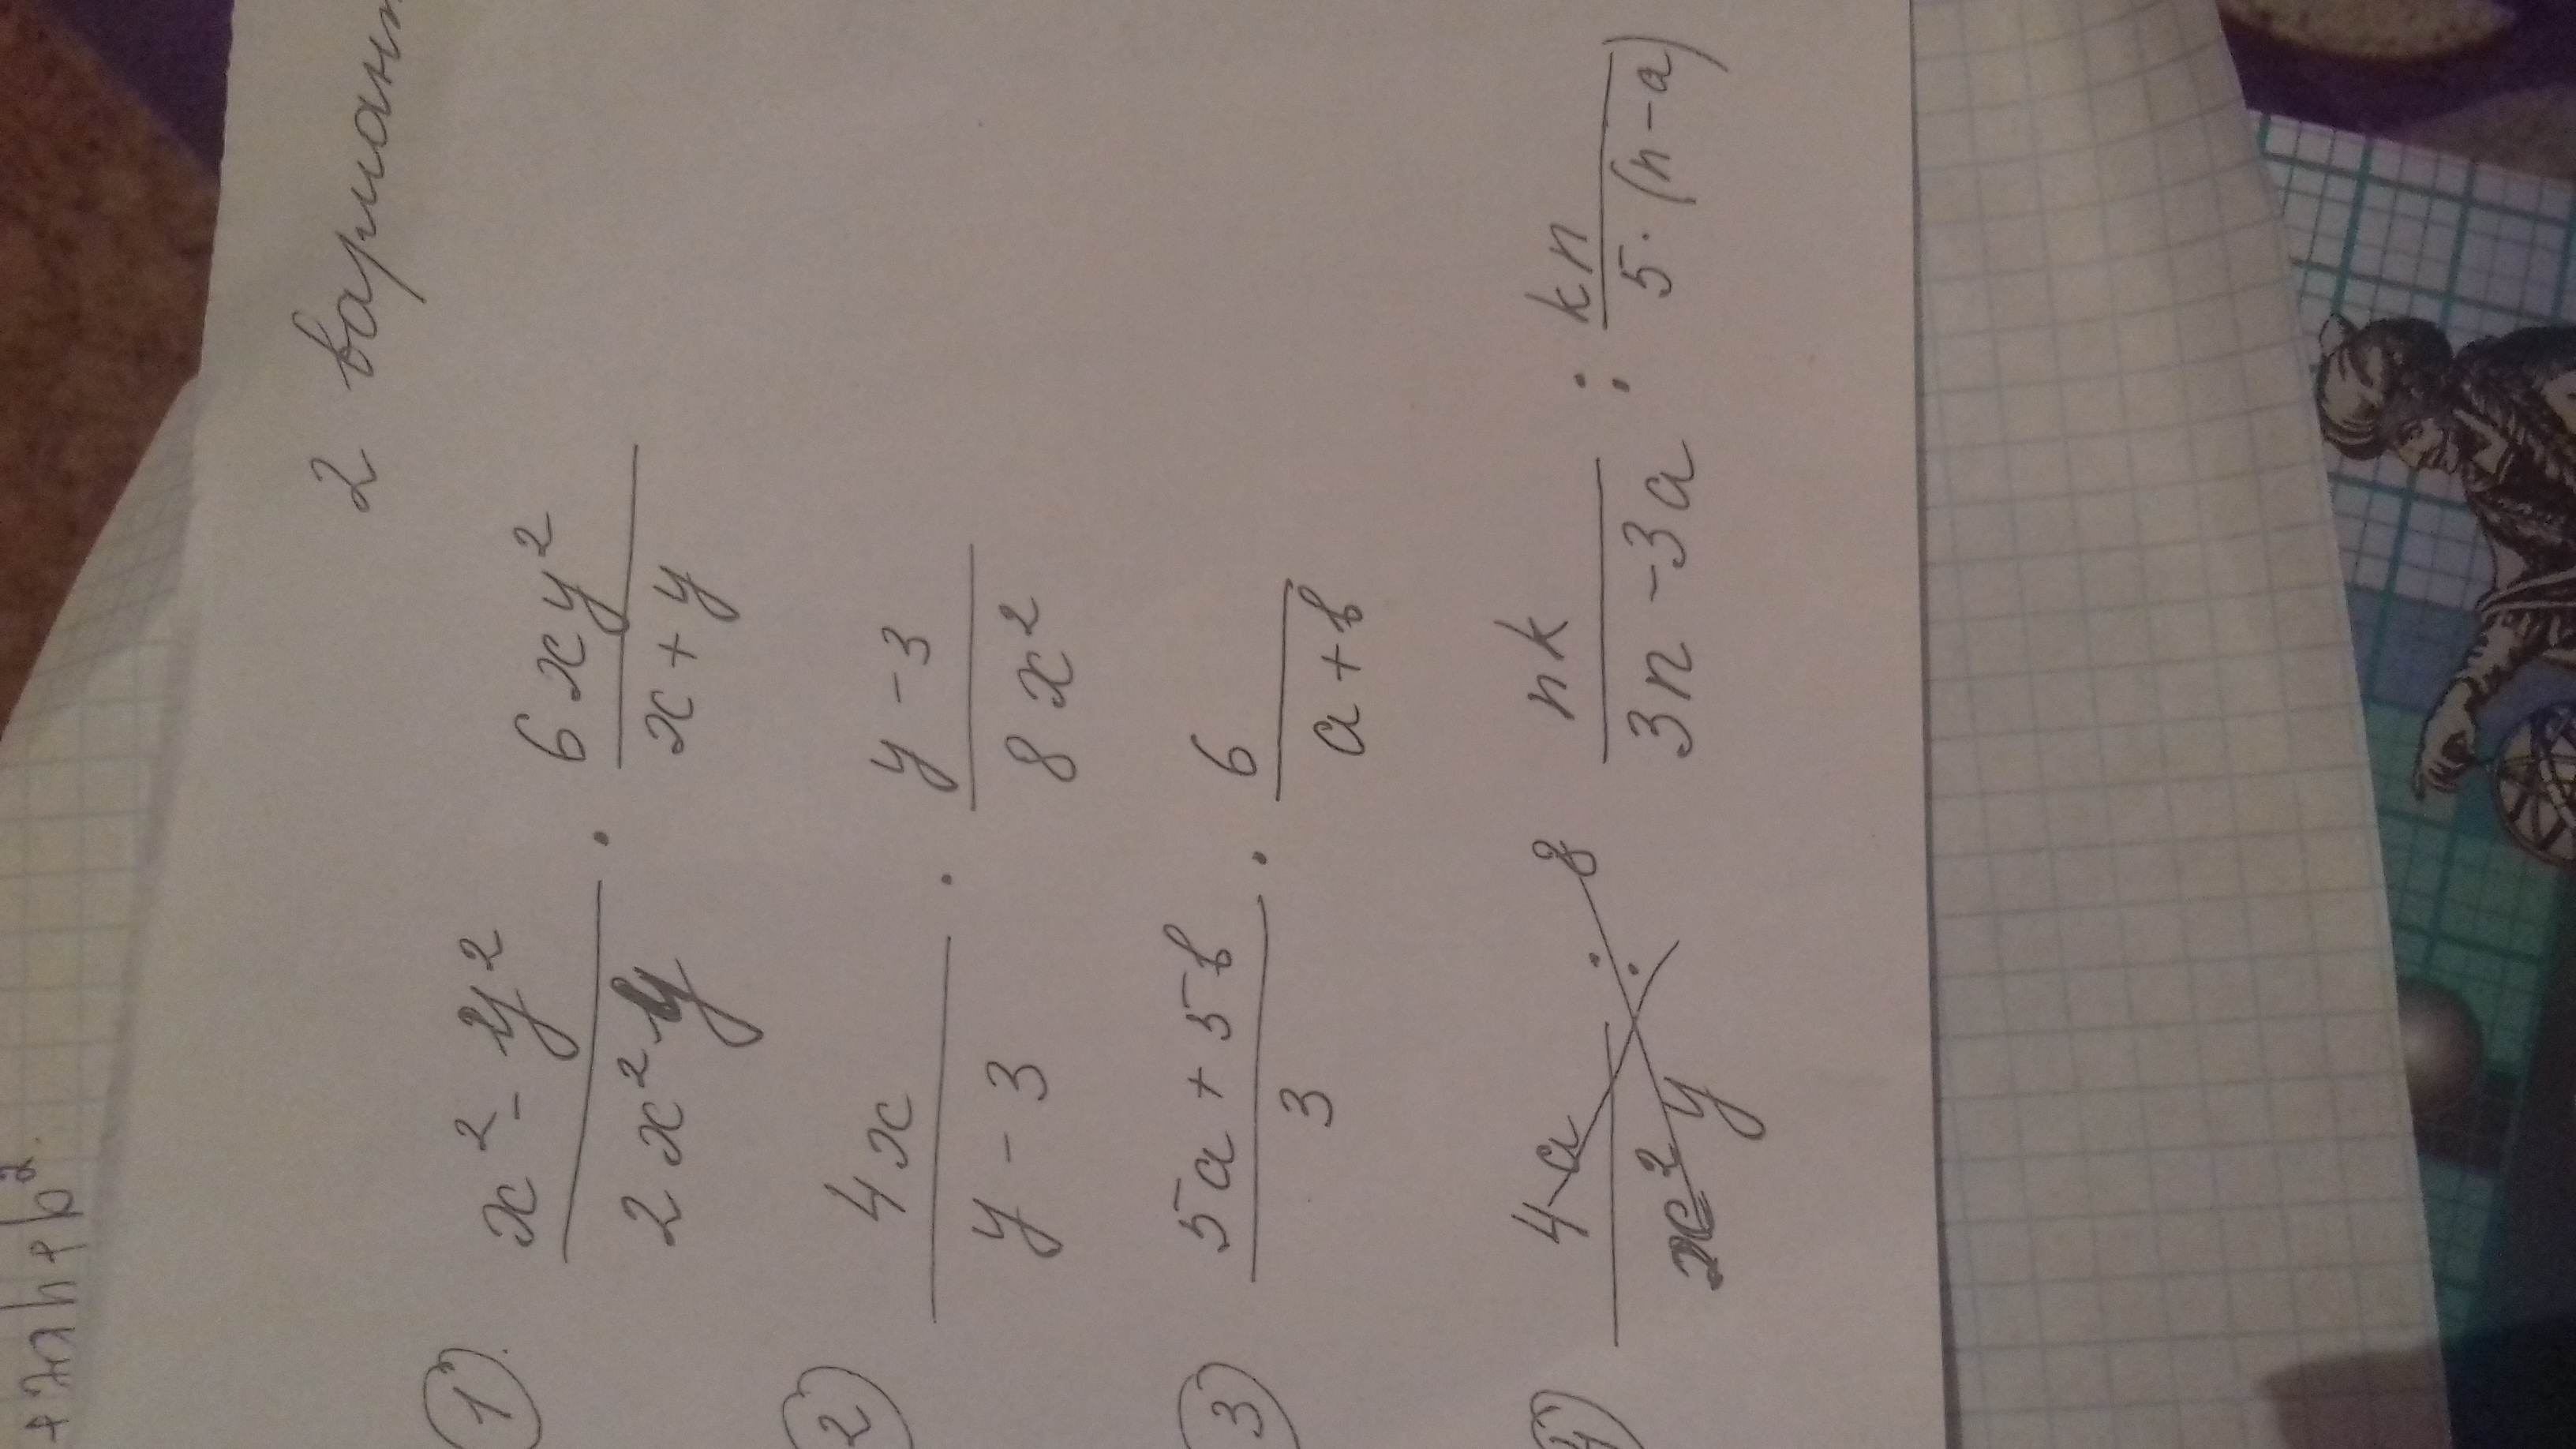 2 вариант
① x² - y² / 2x²y · 6xy² / x + y
② 4x / y - 3 · y - 3 / 8x²
③ 5a + 5b / 3 · 6 / a + b
④ nk / 3n - 3a : kn / 5 · (n - a)